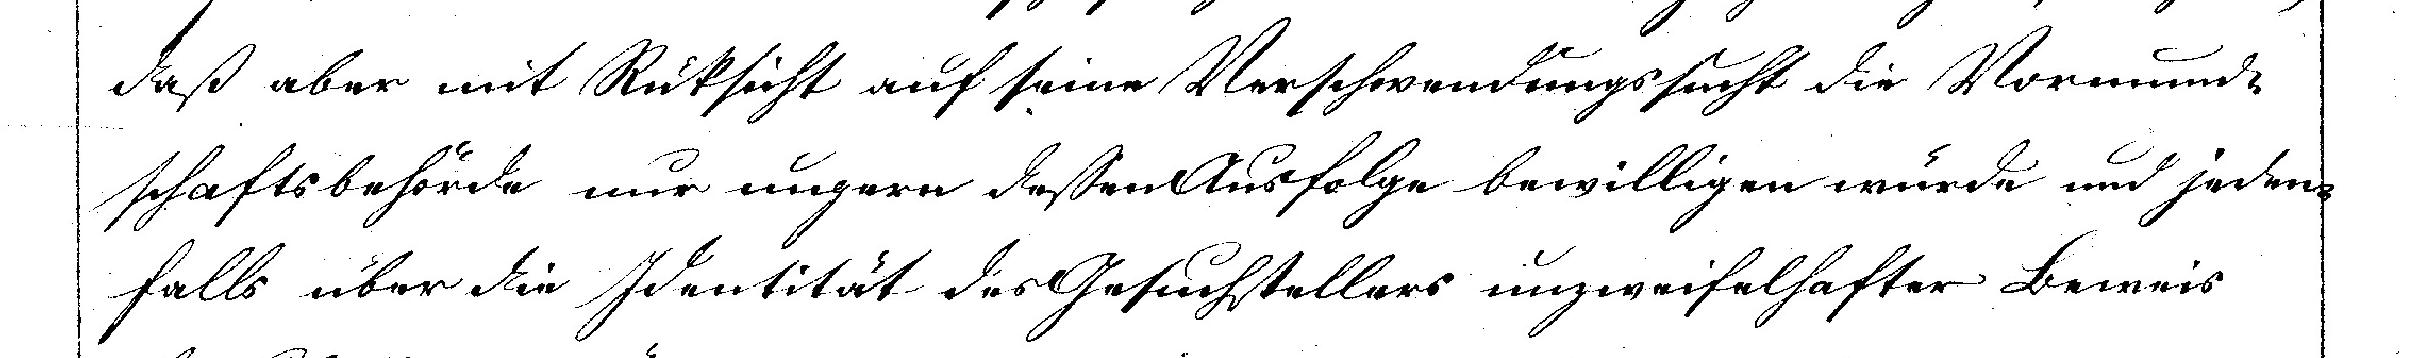 daß aber mit Rüksicht auf seine Verschwendungssucht die Vormund-
schaftsbehörde nur ungern dessen Ausfolge bewilligen würde und jeden-
falls über die Identität des Gesuchstellers unzweifelhafter Beweis